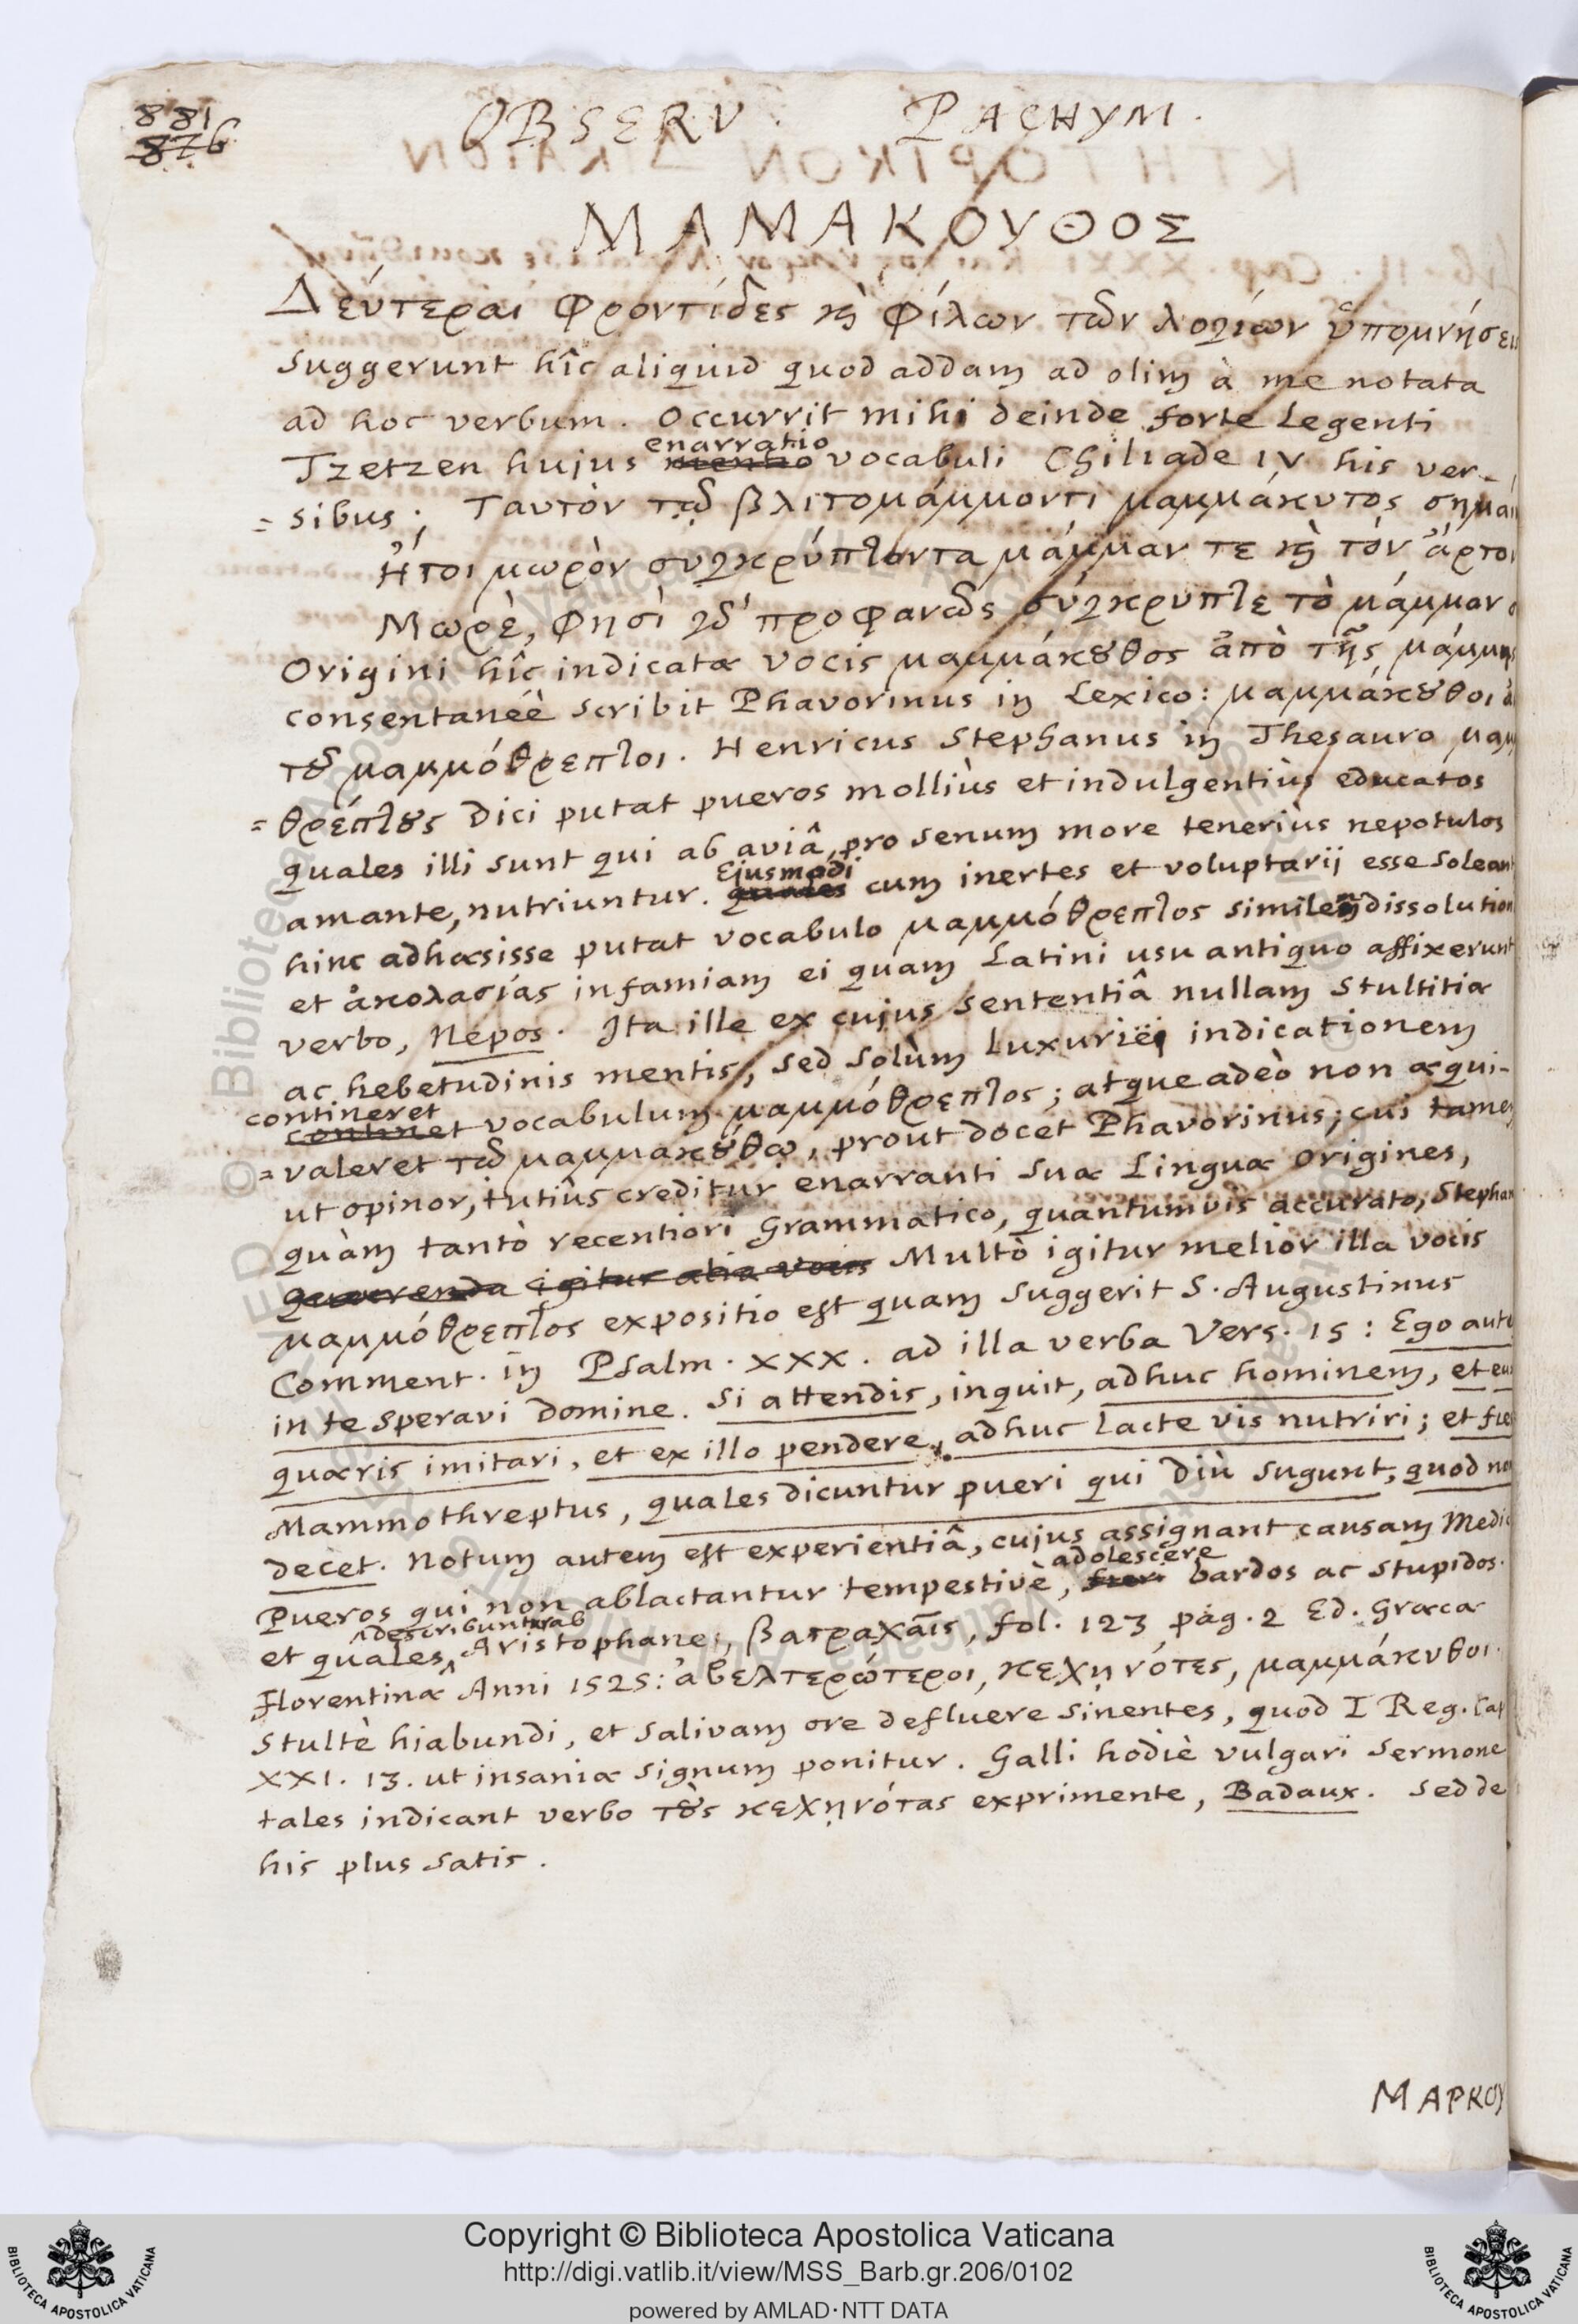 881
876
OBSERV. PACHYM.
ΜΑΜΑΚΟΥΘΟΣ
Δεύτεραι φροντίδες κὶ φίλων τῶν λογίων ὑπομνήσει
suggerunt hîc aliquid quod addam ad olim à me notata
ad hoc verbum. Occurrit mihi deinde forte Legenti
enarratio
Tzetzen hujus mentio vocabuli Chiliade IV his ver-
= sibus; Ταυτὸν τῷ βλιτομάμμοντι μαμμάκυτος σημαί
Ἤτοι μωρὸν συγκρύπτοντα μάμμαν τε κὶ τὸν ἄρτο
Μωρὲ, φησὶ γὸ προφανῶς σύγκρυπτε τὸ μάμμαν
Origini hîc indicatæ vocis μαμμάκȣθος ἀπὸ τῆς μάμμης
consentaneè scribit Phavorinus in Lexico: μαμμάκȣθοι
τȣ͂ μαμμόθρεπτοι. Henricus Stephanus in Thesauro μαμ
= θρέπτȣς dici putat pueros molliùs et indulgentiùs educatos
quales illi sunt qui ab aviâ, pro senum more tenerius nepotulos
Ejusmodi
amante, nutriuntur. quales cum inertes et voluptarij esse solean
hinc adhæsisse putat vocabulo μαμμόθρεπτος similem dissolution
et ἀκολασίας infamiam ei quam Latini usu antiquo affixerunt
verbo, Nepos. Ita ille ex cujus sententiâ nullam stultitiæ
ac hebetudinis mentis, sed solùm Luxuriei indicationem
contineret
continet vocabulum μαμμόθρεπτος; atque adeò non æqui-
= valeret τῷ μαμμακȣ́θω, prout docet Phavorinus; cui tamen
ut opinor, tutiùs creditur enarranti suæ Linguæ origines,
quàm tantò recentiori Grammatico, quantumvis accurato, Stephan
Quærenda igitur alia vocis Multò igitur melior illa vocis
μαμμόθρεπτος expositio est quam suggerit S. Augustinus
Comment. in Psalm. XXX. ad illa verba Vers. 15: Ego aute
in te speravi Domine. Si attendis, inquit, adhuc hominem, et eu
quæris imitari, et ex illo pendere, adhuc lacte vis nutriri; et fies
Mammothreptus, quales dicuntur pueri qui diù sugunt, quod no
decet. Notum autem est experientiâ, cujus assignant causam Medic
adolescere
Pueros qui non ablactantur tempestivè, fieri bardos ac stupidos.
describuntur ab
et quales Aristophane, βατραχαῖς, fol. 123 pag. 2 Ed. Græcæ
Florentinæ Anni 1525: ἀβελτερώτεροι, κεχηνότες, μαμμάκυθοι.
Stultè hiabundi, et salivam ore defluere sinentes, quod I Reg. Cap
XXI. 13. ut insaniæ signum ponitur. Galli hodiè vulgari sermone
tales indicant verbo τȣ̀ς κεχηνότας exprimente, Badaux. Sed de
his plus satis.
ΜΑΡΚΟΥ
Copyright © Biblioteca Apostolica Vaticana
http://digi.vatlib.it/view/MSS_Barb.gr.206/0102
powered by AMLAD·NTT DATA
BIBLIOTECA APOSTOLICA VATICANA
BIBLIOTECA APOSTOLICA VATICANA